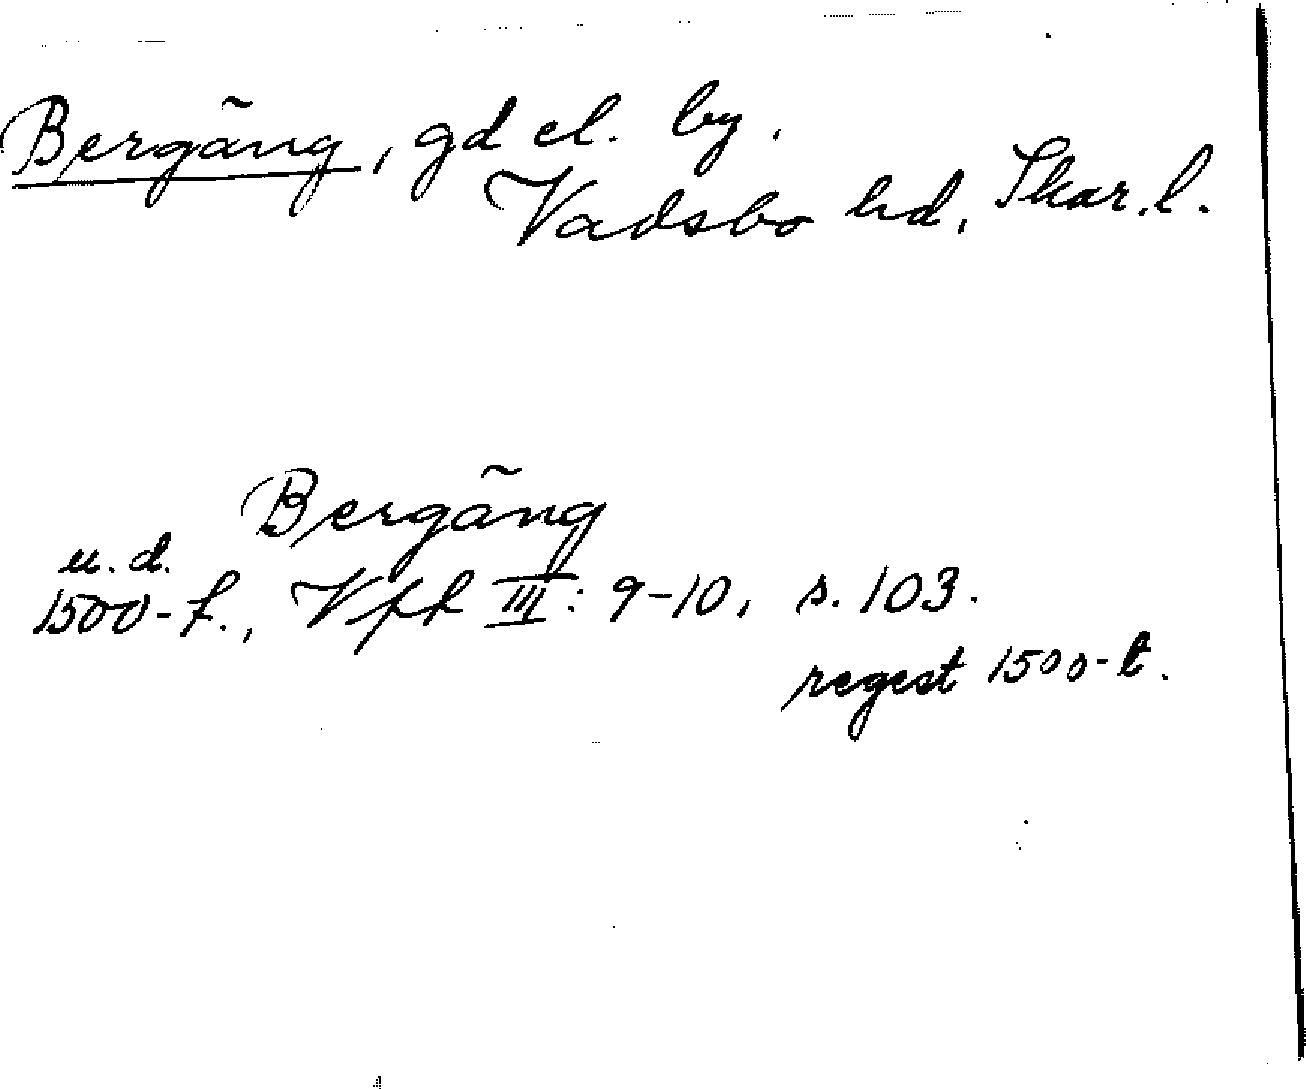 Bergäng, gd el. by.
Vadsbo hd, Skar. l.
Bergäng
u. d.
1500-t., Vff III: 9-10, s. 103.
regest 1500-t.